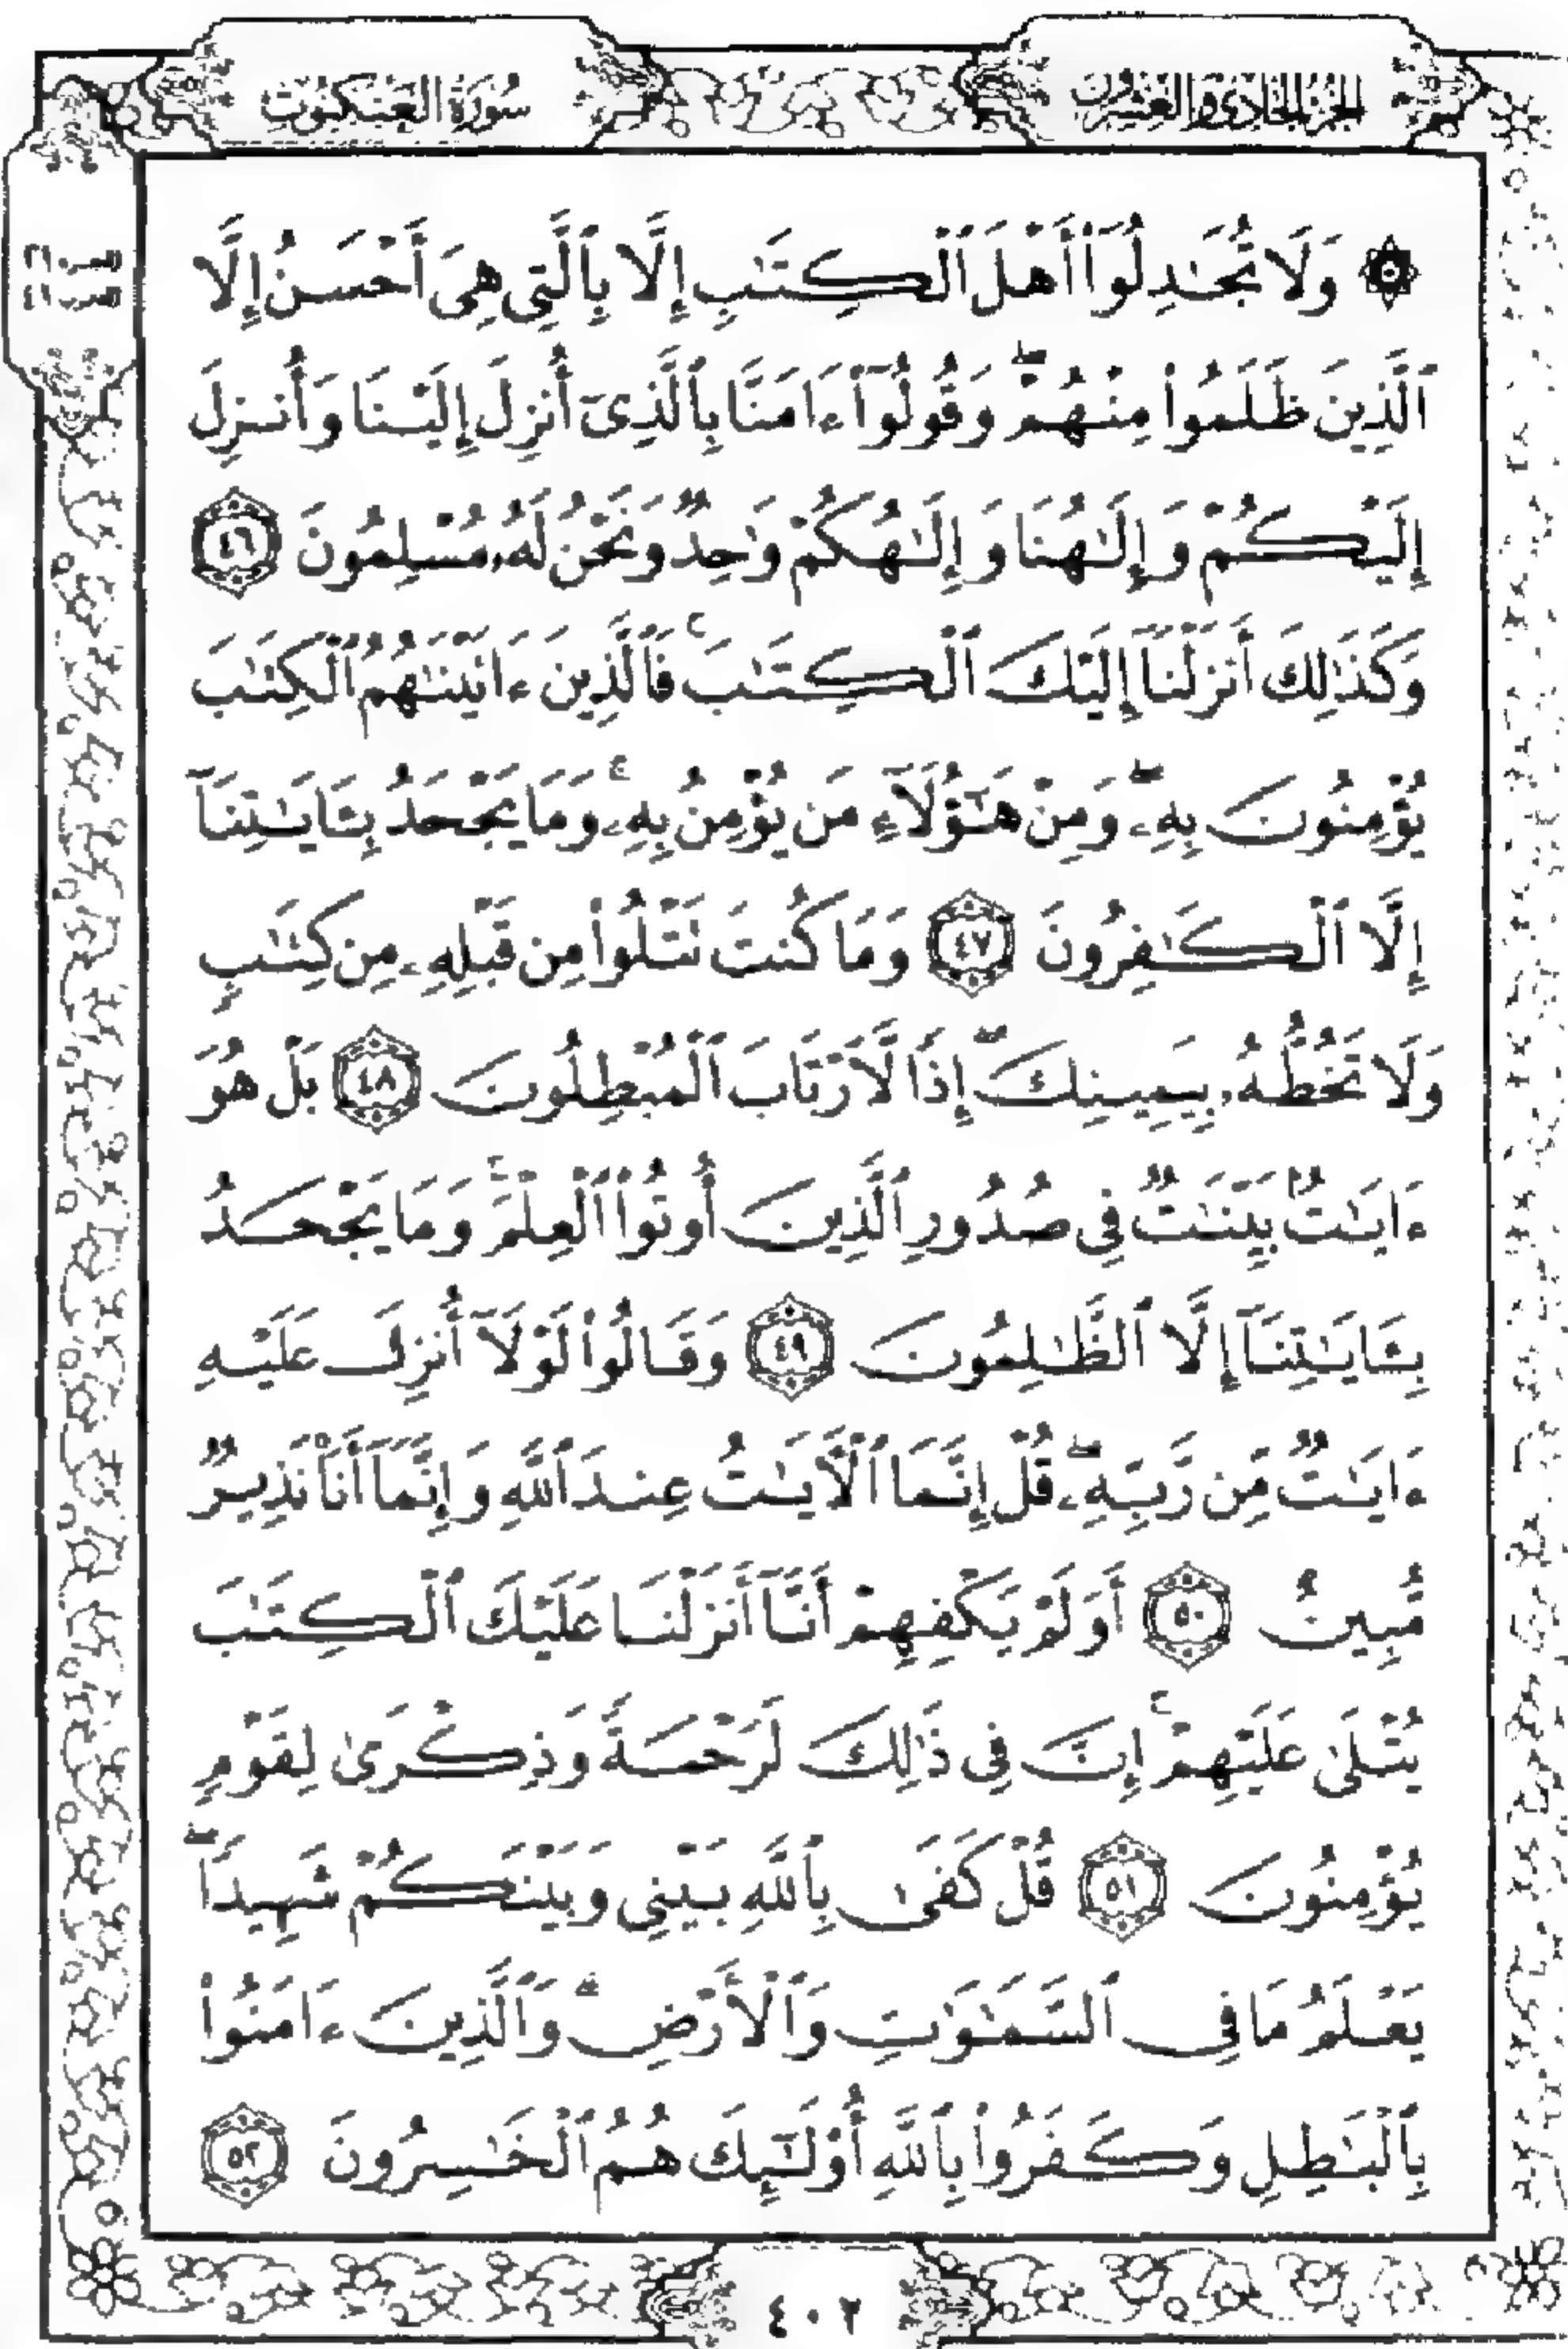 الجزء الحادي والعشرون
سورة العنكبوت
۞ وَلَا تُجَٰدِلُوٓا۟ أَهْلَ ٱلْكِتَٰبِ إِلَّا بِٱلَّتِى هِىَ أَحْسَنُ إِلَّا
ٱلَّذِينَ ظَلَمُوا۟ مِنْهُمْ ۖ وَقُولُوٓا۟ ءَامَنَّا بِٱلَّذِىٓ أُنزِلَ إِلَيْنَا وَأُنزِلَ
إِلَيْكُمْ وَإِلَٰهُنَا وَإِلَٰهُكُمْ وَٰحِدٌ وَنَحْنُ لَهُۥ مُسْلِمُونَ ٤٦
وَكَذَٰلِكَ أَنزَلْنَآ إِلَيْكَ ٱلْكِتَٰبَ ۚ فَٱلَّذِينَ ءَاتَيْنَٰهُمُ ٱلْكِتَٰبَ
يُؤْمِنُونَ بِهِۦ ۖ وَمِنْ هَٰٓؤُلَآءِ مَن يُؤْمِنُ بِهِۦ ۚ وَمَا يَجْحَدُ بِـَٔايَٰتِنَآ
إِلَّا ٱلْكَٰفِرُونَ ٤٧ وَمَا كُنتَ تَتْلُوا۟ مِن قَبْلِهِۦ مِن كِتَٰبٍ
وَلَا تَخُطُّهُۥ بِيَمِينِكَ ۖ إِذًا لَّٱرْتَابَ ٱلْمُبْطِلُونَ ٤٨ بَلْ هُوَ
ءَايَٰتٌۢ بَيِّنَٰتٌ فِى صُدُورِ ٱلَّذِينَ أُوتُوا۟ ٱلْعِلْمَ ۚ وَمَا يَجْحَدُ
بِـَٔايَٰتِنَآ إِلَّا ٱلظَّٰلِمُونَ ٤٩ وَقَالُوا۟ لَوْلَآ أُنزِلَ عَلَيْهِ
ءَايَٰتٌ مِّن رَّبِّهِۦ ۖ قُلْ إِنَّمَا ٱلْءَايَٰتُ عِندَ ٱللَّهِ وَإِنَّمَآ أَنَا۠ نَذِيرٌ
مُّبِينٌ ٥٠ أَوَلَمْ يَكْفِهِمْ أَنَّآ أَنزَلْنَا عَلَيْكَ ٱلْكِتَٰبَ
يُتْلَىٰ عَلَيْهِمْ ۚ إِنَّ فِى ذَٰلِكَ لَرَحْمَةً وَذِكْرَىٰ لِقَوْمٍ
يُؤْمِنُونَ ٥١ قُلْ كَفَىٰ بِٱللَّهِ بَيْنِى وَبَيْنَكُمْ شَهِيدًا ۖ
يَعْلَمُ مَا فِى ٱلسَّمَٰوَٰتِ وَٱلْأَرْضِ ۗ وَٱلَّذِينَ ءَامَنُوا۟
بِٱلْبَٰطِلِ وَكَفَرُوا۟ بِٱللَّهِ أُو۟لَٰٓئِكَ هُمُ ٱلْخَٰسِرُونَ ٥٢
٤٠٢